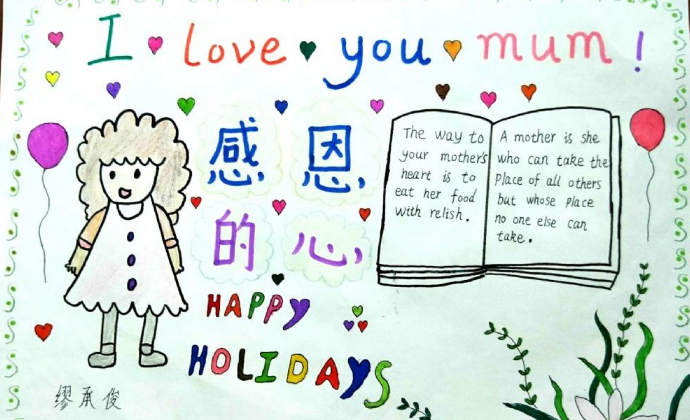 I love you mum!
感恩
的心
The way to
your mother's
heart is to
eat her food
with relish.
A mother is she
who can take the
Place of all others
but whose Place
no one else can
take.
HAPPY
HOLIDAYS
缪承俊